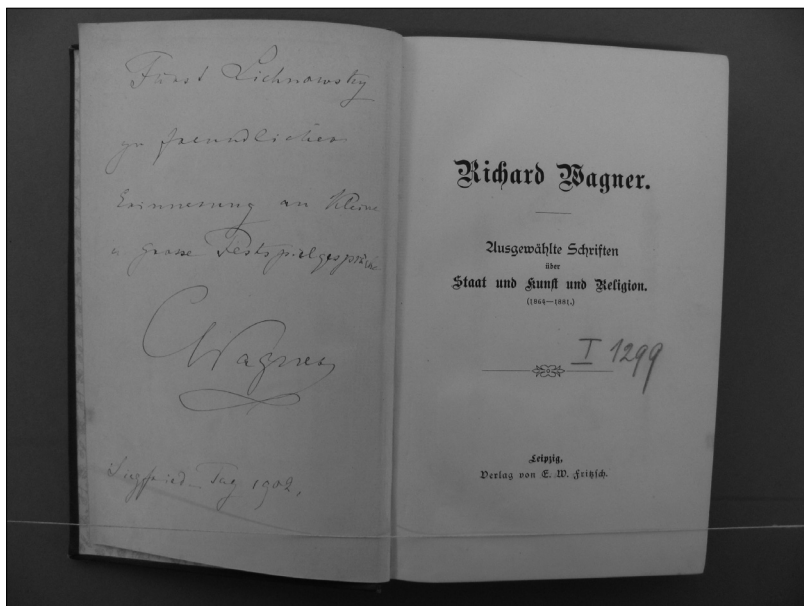 Fürst Lichnowsky
zu freundlicher
Erinnerung an kleine
u grosse Festspielgespräche
CWagner
Siegfried-Tag 1902,
Richard Wagner.
Ausgewählte Schriften
über
Staat und Kunst und Religion.
(1864—1881.)
I 1299
Leipzig,
Verlag von E. W. Fritzsch.